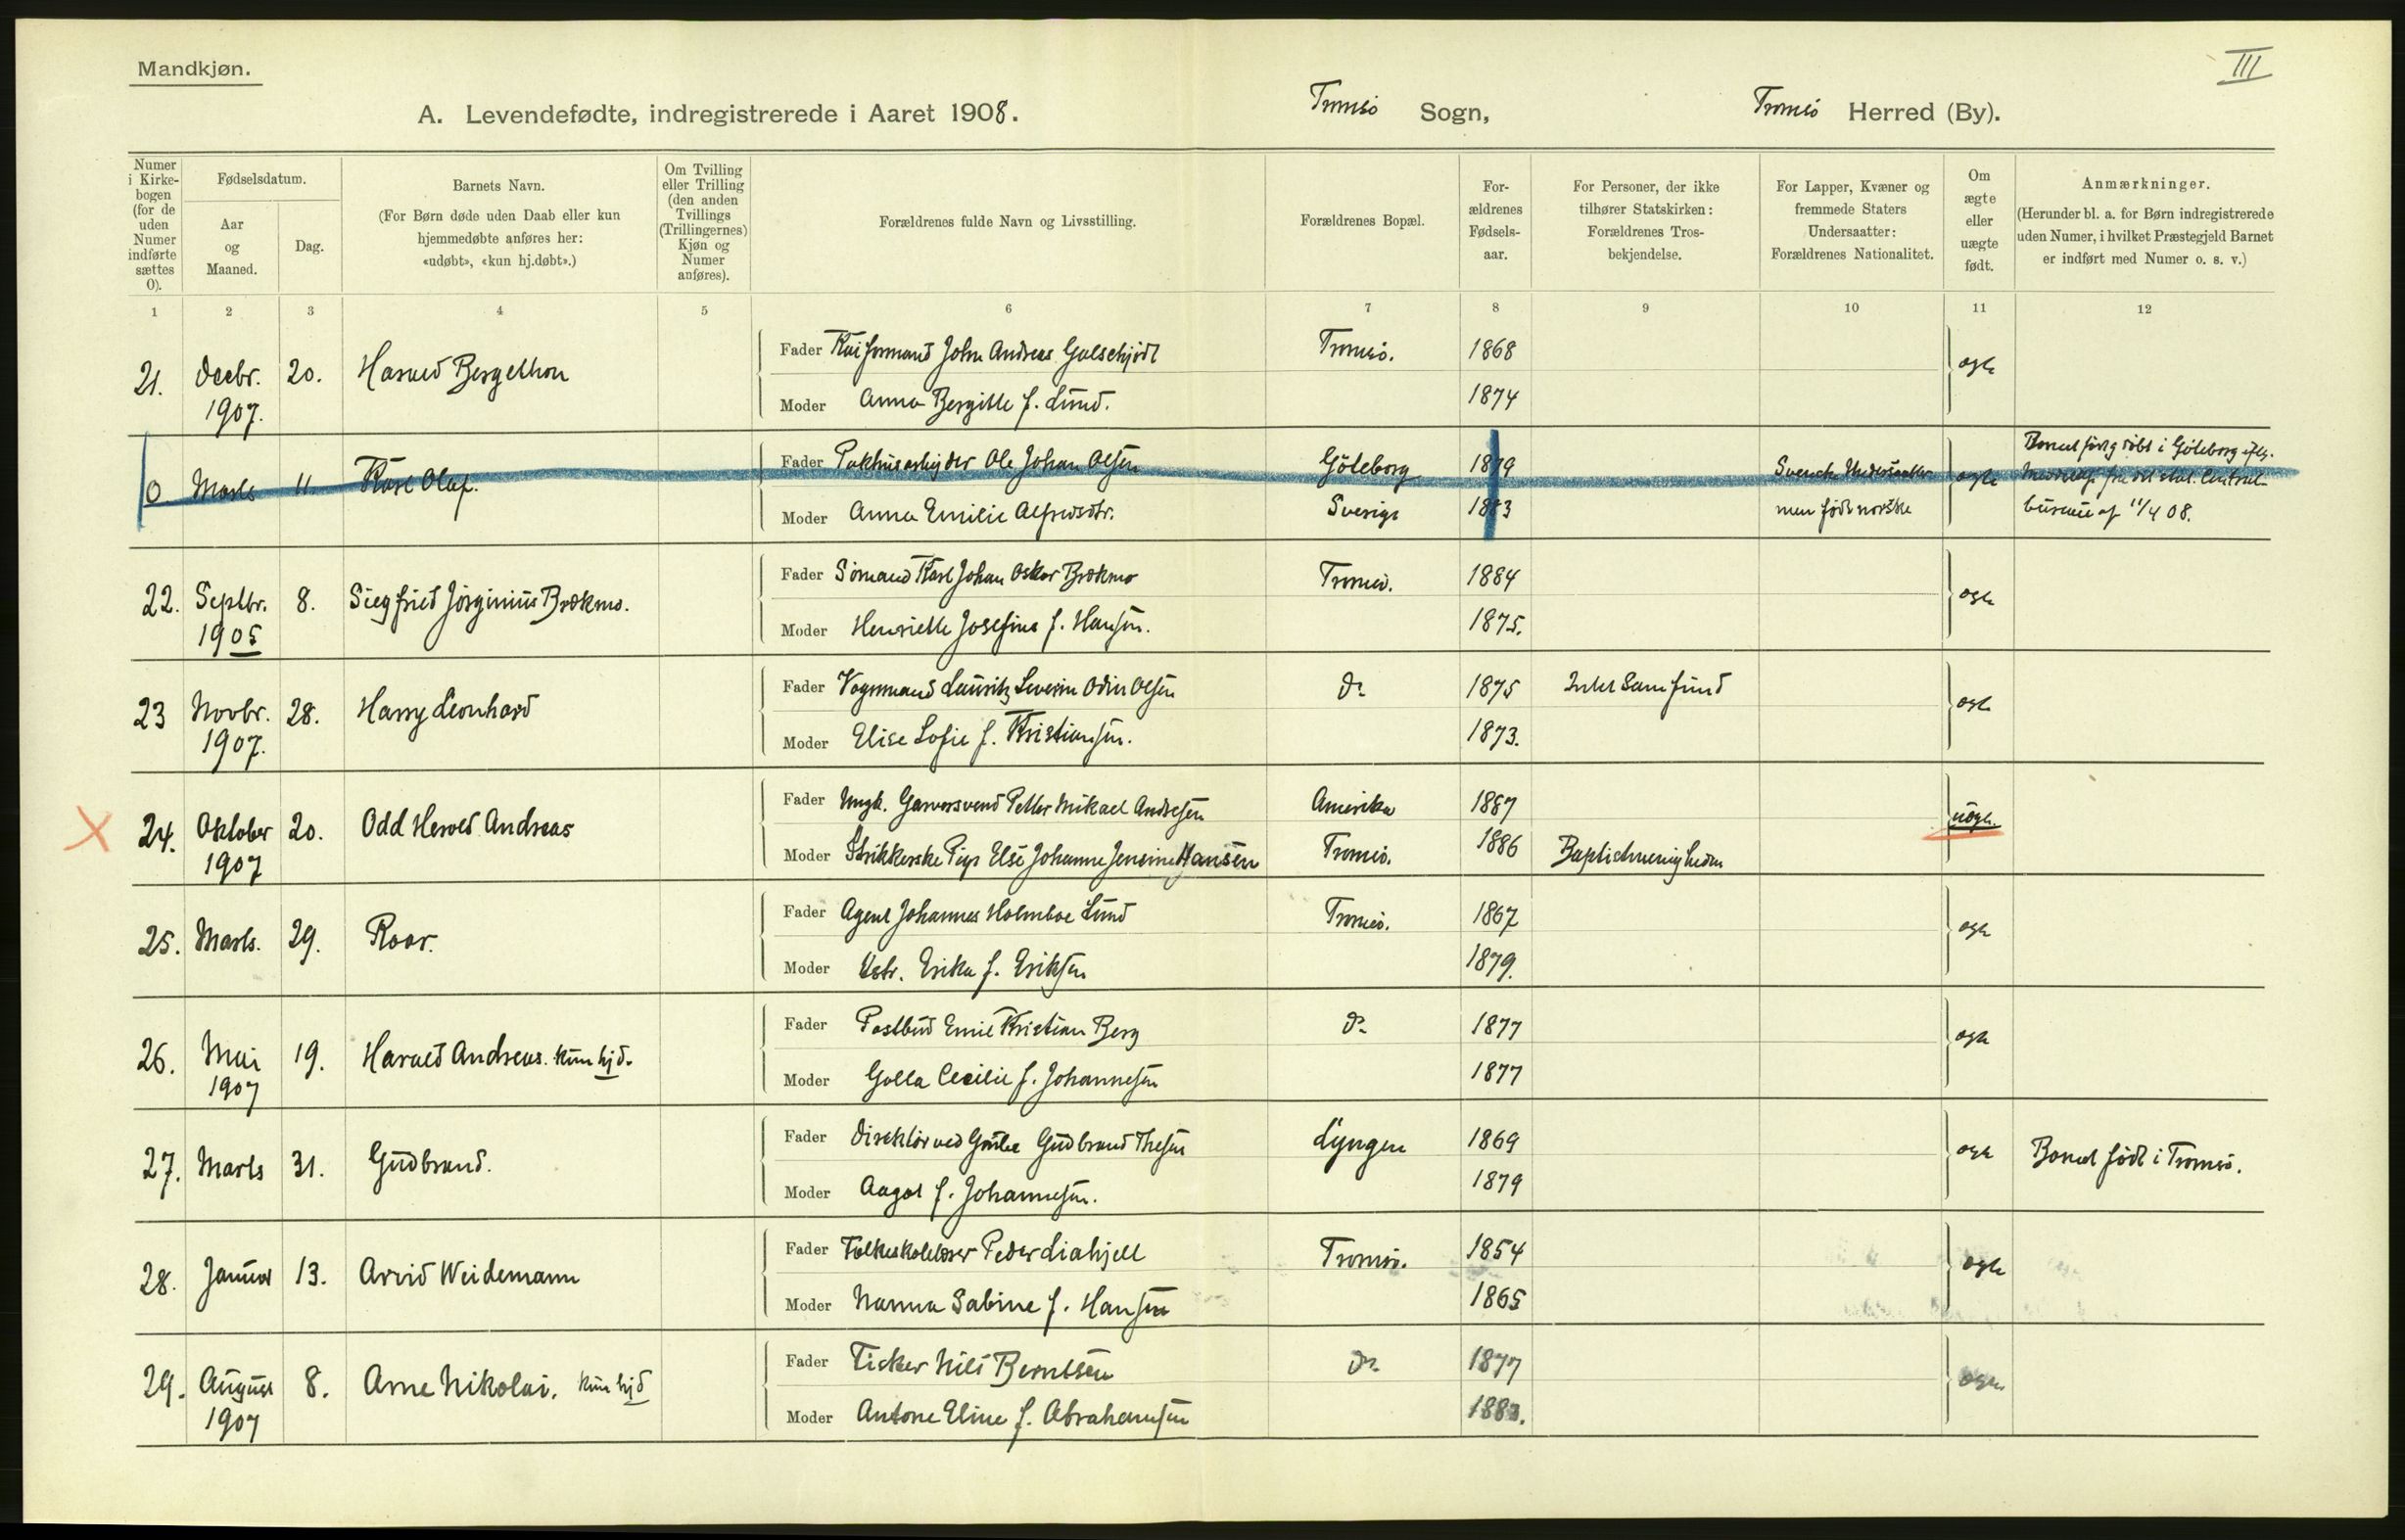 Mandkjøn.
III
A. Levendefødte, indregistrerede i Aaret 1908. Tromsö Sogn, Tromsö Herred (By).
Numer i Kirkebogen (for de uden Numer indførte sættes 0).
Fødselsdatum.
Aar og Maaned.
Dag.
Barnets Navn.
(For Børn døde uden Daab eller kun hjemmedøbte anføres her: «udøbt», «kun hj.døbt».)
Om Tvilling eller Trilling (den anden Tvillings (Trillingernes) Kjøn og Numer anføres).
Forældrenes fulde Navn og Livsstilling.
Forældrenes Bopæl.
Forældrenes Fødselsaar.
For Personer, der ikke tilhører Statskirken: Forældrenes Trosbekjendelse.
For Lapper, Kvæner og fremmede Staters Undersaatter: Forældrenes Nationalitet.
Om ægte eller uægte født.
Anmærkninger.
(Herunder bl. a. for Børn indregistrerede uden Numer, i hvilket Præstegjeld Barnet er indført med Numer o. s. v.)
1 2 3 4 5 6 7 8 9 10 11 12
21. Decbr. 1907. 20. Harald Bergethon
Fader John Andreas Tromsö. 1868 ægte
Moder Anna Bergitte f. Lund. 1874
0 Marts 11. Kåre Olaf.
Fader Pakhusarbejder Ole Johan Olsen Göteborg 1879 Svenske Undersaatter ægte
Moder Anna Emilie Alfredsdtr. Sverige 1883 men födt norske
Barnet født og døbt i Göteborg iflg.
Meddelelse fra det stat. Centralbureau af 11/4 08.
22. Septbr. 1905 8. Siegfried Jörginius Brækmo.
Fader Sömand Karl Johan Oskar Brækmo Tromsö. 1884 ægte
Moder Henriette Josefine f. Hansen. 1875.
23 Novbr. 1907. 28. Harry Leonhard
Fader Vognmand Lauritz Severin Odin Olsen do 1875 Intet Samfund ægte
Moder Elise Sofie f. Kristiansen. 1873.
X 24. Oktober 1907 20. Odd Herold Andreas
Fader Ungk. Garversvend Petter Mikael Andresen Amerika 1887 uægte.
Moder Strikkerske Pige Else Johanne Jensine Hansen Tromsö. 1886 Baptistmenigheden
25. Marts. 29. Roar.
Fader Agent Johannes Holmboe Lund Tromsö. 1867 ægte
Moder Erika f. Eriksen 1879.
26. Mai 1907 19. Harald Andreas. kun hjd.
Fader Postbud Emil Kristian Berg do 1877 ægte
Moder Golla Cecilie f. Johannesen 1877
27. Marts 31. Gudbrand.
Fader Direktör ved Grube Gudbrand Thesen Lyngen 1869 ægte Barnet födt i Tromsö.
Moder Aagot f. Johannesen. 1879
28. Januar 13. Arvid Weidemann
Fader Folkeskolelærer Peder Liahjell Tromsö. 1854 ægte
Moder Nanna Sabine f. Hansen 1865
29. August 1907 8. Arne Nikolai. kun hjd
Fader Fisker Nils Berntsen do. 1877 ægte
Moder Antone Eline f. Abrahamsen 1883.